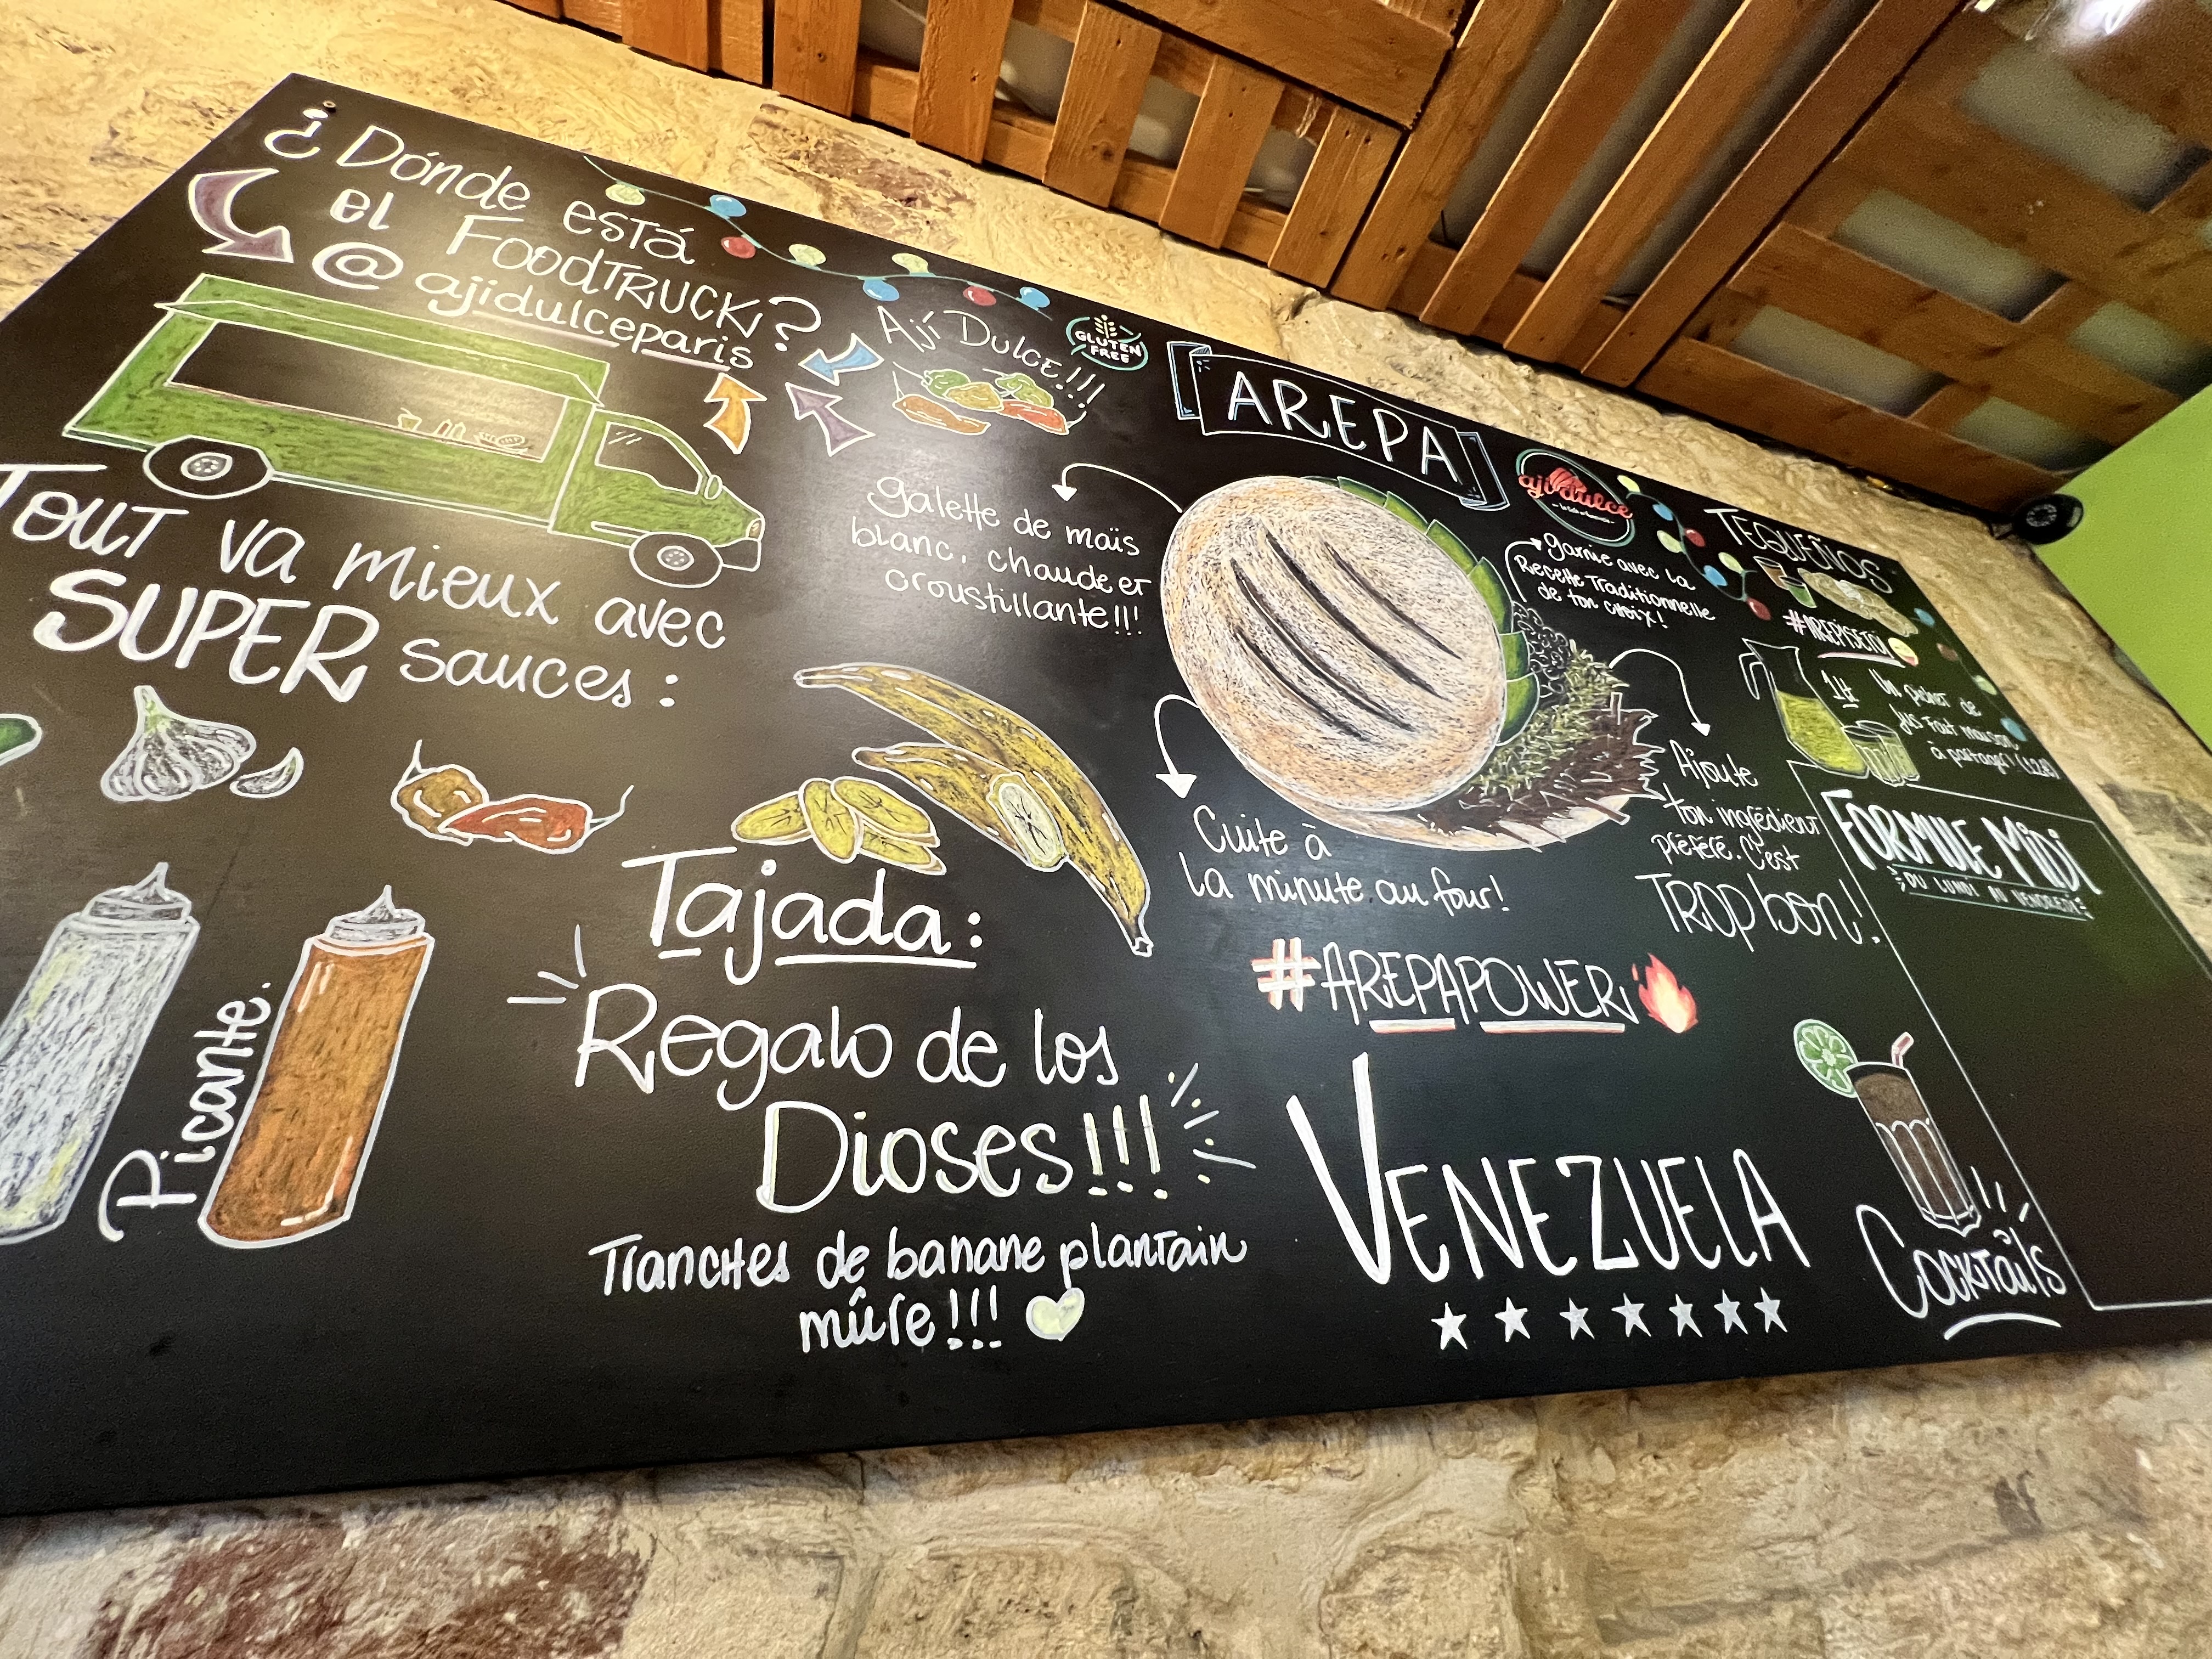 ¿Dónde está
el FoodTruck?
@ajidulceparis
Tout va mieux avec
SUPER sauces:
Picante.
Ají Dulce!!!
GLUTEN
FREE
AREPA
galette de maïs
blanc, chaude et
croustillante!!!
aji dulce
garnie avec la
Recette Traditionnelle
de ton choix!
Cuite à
la minute au four!
Ajoute
ton ingrédient
préféré. C'est
TROP bon!
#AREPAPOWER
Tajada:
Regalo de los
Dioses!!!
Tranches de banane plantain
mûre!!!
VENEZUELA
TEQUEÑOS
#AREPISETOI
1L
Un pichet de
jus fait maison
à partager!
FORMULE MIDI
DU LUNDI AU VENDREDI
Cocktails